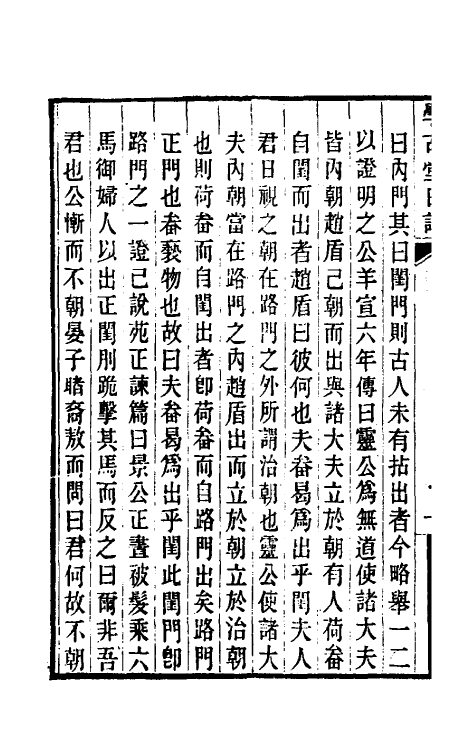 學古堂日記
曰內門其曰閨門則古人未有拈出者今略舉一二
以證明之公羊宣六年傳曰靈公爲無道使諸大夫
皆內朝趙盾已朝而出與諸大夫立於朝有人荷畚
自閨而出者趙盾曰彼何也夫畚曷爲出乎閨夫人
君日視之朝在路門之外所謂治朝也靈公使諸大
夫內朝當在路門之內趙盾出而立於朝立於治朝
也則荷畚而自閨出者卽荷畚而自路門出矣路門
正門也畚褻物也故曰夫畚曷爲出乎閨此閨門卽
路門之一證已說苑正諫篇曰景公正晝被髮乘六
馬御婦人以出正閨刖跪擊其馬而反之曰爾非吾
君也公慚而不朝晏子睹裔敖而問曰君何故不朝